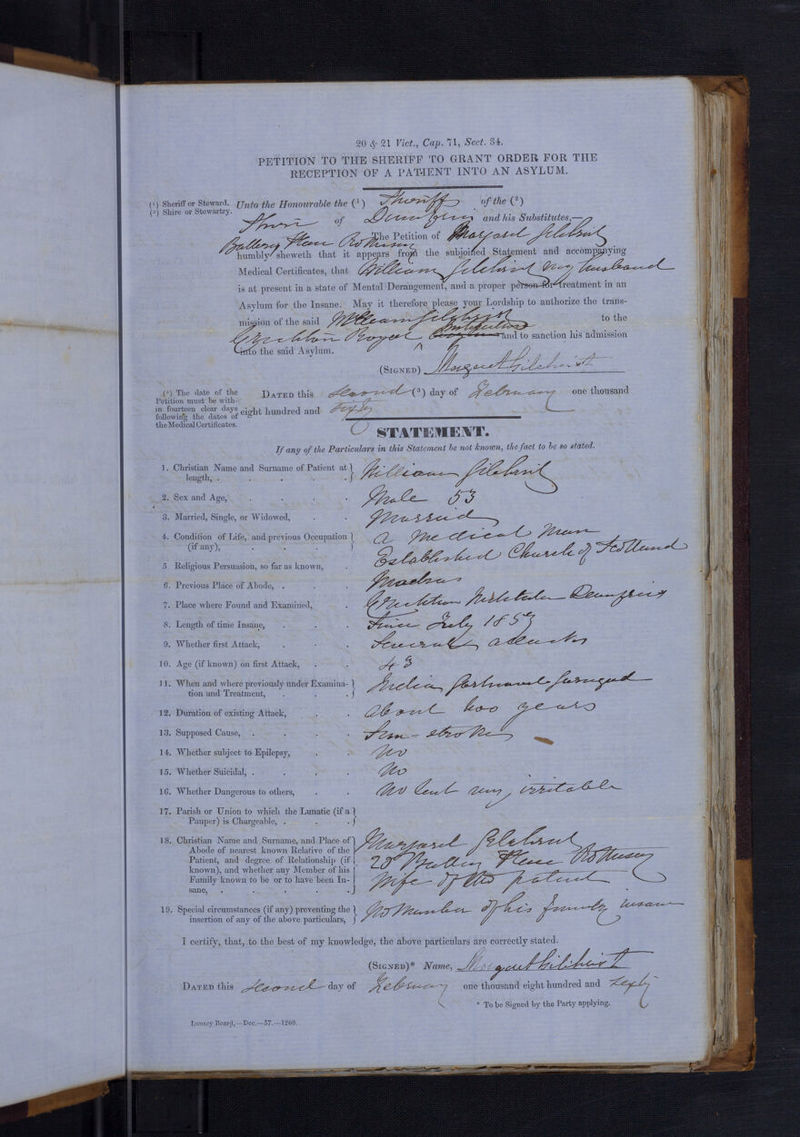 20 & 21 Vict., Cap. 71, Sect. 34.
PETITION TO THE SHERIFF TO GRANT ORDER FOR THE
RECEPTION OF A PATIENT INTO AN ASYLUM.
(¹) Sheriff or Steward.
(²) Shire or Stewartry.
Unto the Honourable the (¹) Sheriff of the (²)
Shire of Dumfries and his Substitutes,
The Petition of Margaret Gilchrist
Battery Place Rothesay
humbly sheweth that it appears from the subjoined Statement and accompanying
Medical Certificates, that William Gilchrist my husband
is at present in a state of Mental Derangement, and a proper person for treatment in an
Asylum for the Insane. May it therefore please your Lordship to authorize the trans-
mission of the said William Gilchrist to the
Crichton Royal Institution and to sanction his admission
into the said Asylum.
(SIGNED) Margaret Gilchrist
(³) The date of the
Petition must be with-
in fourteen clear days
following the dates of
the Medical Certificates.
DATED this second (³) day of February one thousand
eight hundred and sixty
STATEMENT.
If any of the Particulars in this Statement be not known, the fact to be so stated.
1. Christian Name and Surname of Patient at length, . William Gilchrist
2. Sex and Age, Male 53
3. Married, Single, or Widowed, Married
4. Condition of Life, and previous Occupation (if any), A medical man
5 Religious Persuasion, so far as known, Established Church of Scotland
6. Previous Place of Abode, . Madras
7. Place where Found and Examined, Crichton Institution Dumfries
8. Length of time Insane, Since July 185
9. Whether first Attack, Several attacks
10. Age (if known) on first Attack, 43
11. When and where previously under Examina-
tion and Treatment, India
12. Duration of existing Attack, about two years
13. Supposed Cause, . Sun-stroke
14. Whether subject to Epilepsy, No
15. Whether Suicidal, . No
16. Whether Dangerous to others, No but very irritable
17. Parish or Union to which the Lunatic (if a
Pauper) is Chargeable, .
18. Christian Name and Surname, and Place of
Abode of nearest known Relative of the
Patient, and degree of Relationship (if
known), and whether any Member of his
Family known to be or to have been In-
sane,
Margaret Gilchrist
20 Battery Place Rothesay
Wife of the patient
19. Special circumstances (if any) preventing the
insertion of any of the above particulars,
No Member of his family insane
I certify, that, to the best of my knowledge, the above particulars are correctly stated.
(SIGNED)* Name, Margaret Gilchrist
DATED this second day of February one thousand eight hundred and sixty
* To be Signed by the Party applying.
Lunacy Board,—Dec.—57.—1200.